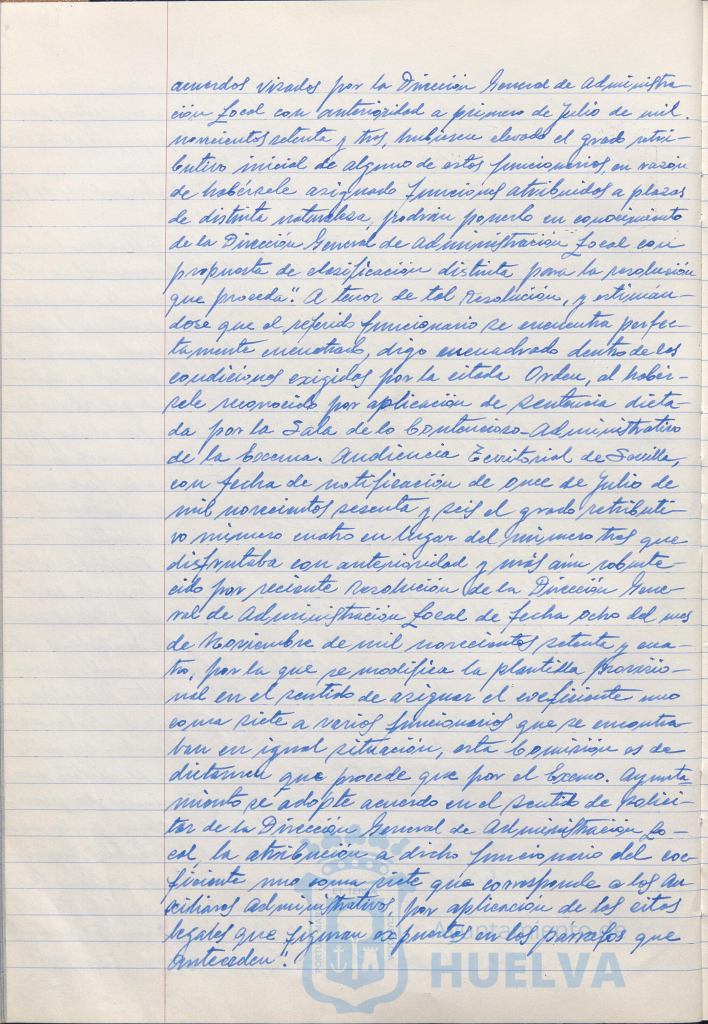 acuerdos visados por la Dirección General de Administra-
ción Local con anterioridad a primero de Julio de mil
novecientos setenta y tres, hubiesen elevado el grado retri-
butivo inicial de alguno de estos funcionarios, en razón
de habérsele asignado funciones atribuidas a plazas
de distinta naturaleza, podrán ponerlo en conocimiento
de la Dirección General de Administración Local con
propuesta de clasificación distinta para la resolución
que proceda". A tenor de tal Resolución, y estimán-
dose que el referido funcionario se encuentra perfec-
tamente encuetrado, digo encuadrado dentro de las
condiciones exigidas por la citada Orden, al habér-
sele reconocido por aplicación de sentencia dicta-
da por la Sala de lo Contencioso-Administrativo
de la Excma. Audiencia Territorial de Sevilla,
con fecha de notificación de once de Julio de
mil novecientos sesenta y seis el grado retributi-
vo número cuatro en lugar del número tres que
disfrutaba con anterioridad y más aún robuste-
cido por reciente Resolución de la Dirección Gene-
ral de Administración Local de fecha ocho del mes
de Noviembre de mil novecientos setenta y cua-
tro, por la que se modifica la plantilla Provisio-
nal en el sentido de asignar el coeficiente uno
coma siete a varios funcionarios que se encontra-
ban en igual situación, esta Comisión es de
dictamen que procede que por el Excmo. Ayunta-
miento se adopte acuerdo en el sentido de solici-
tar de la Dirección General de Administración Lo-
cal, la atribución a dicho funcionario del coe-
ficiente uno coma siete que corresponde a los Au-
xiliares Administrativos, por aplicación de las citas
legales que figuran expuestas en los párrafos que
anteceden".
Ayuntamiento de
HUELVA